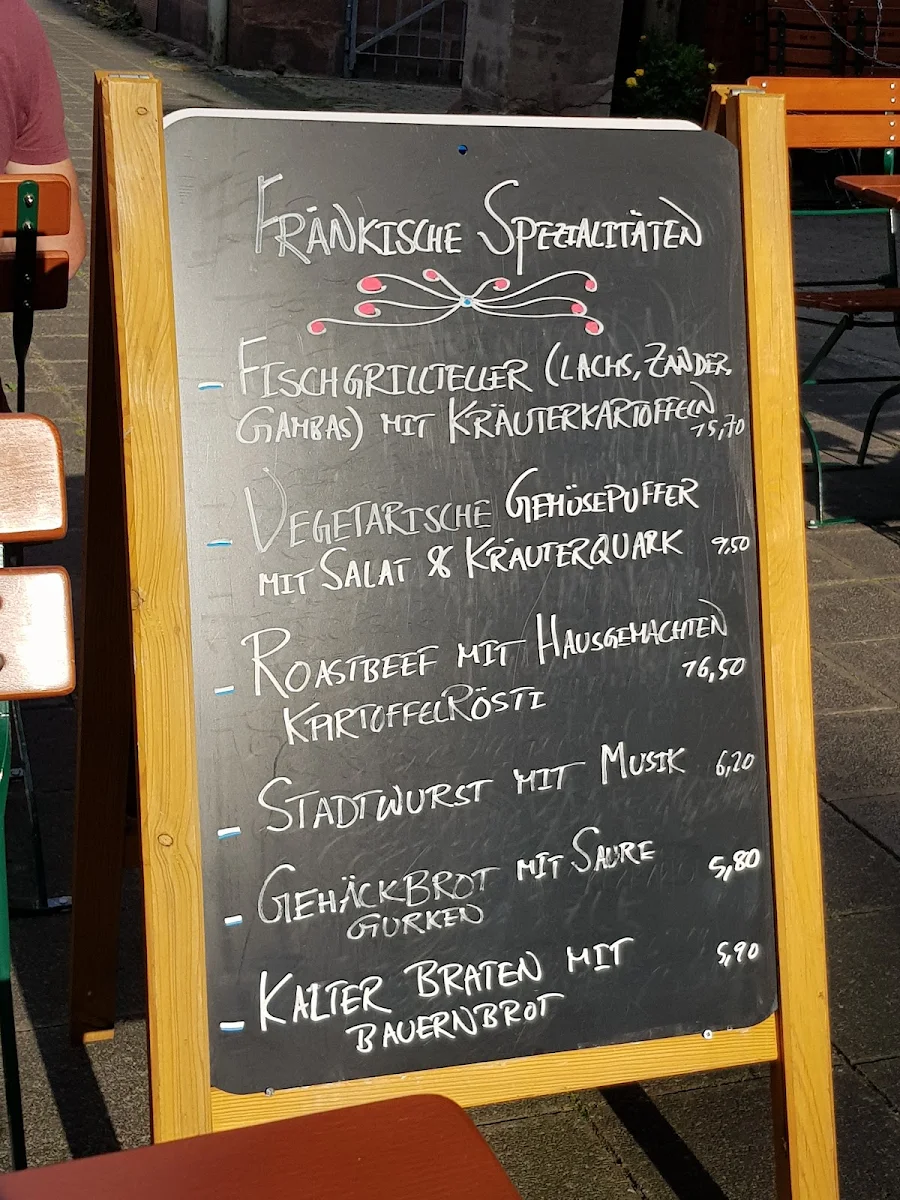 FRÄNKISCHE SPEZIALITÄTEN
- FISCHGRILLTELLER (LACHS, ZANDER,
GAMBAS) MIT KRÄUTERKARTOFFELN
15,70
- VEGETARISCHE GEMÜSEPUFFER
MIT SALAT & KRÄUTERQUARK 9,50
- ROASTBEEF MIT HAUSGEMACHTEN
16,50
KARTOFFELRÖSTI
- STADTWURST MIT MUSIK 6,20
- GEHÄCKBROT MIT SAURE 5,80
GURKEN
- KALTER BRATEN MIT 5,90
BAUERNBROT